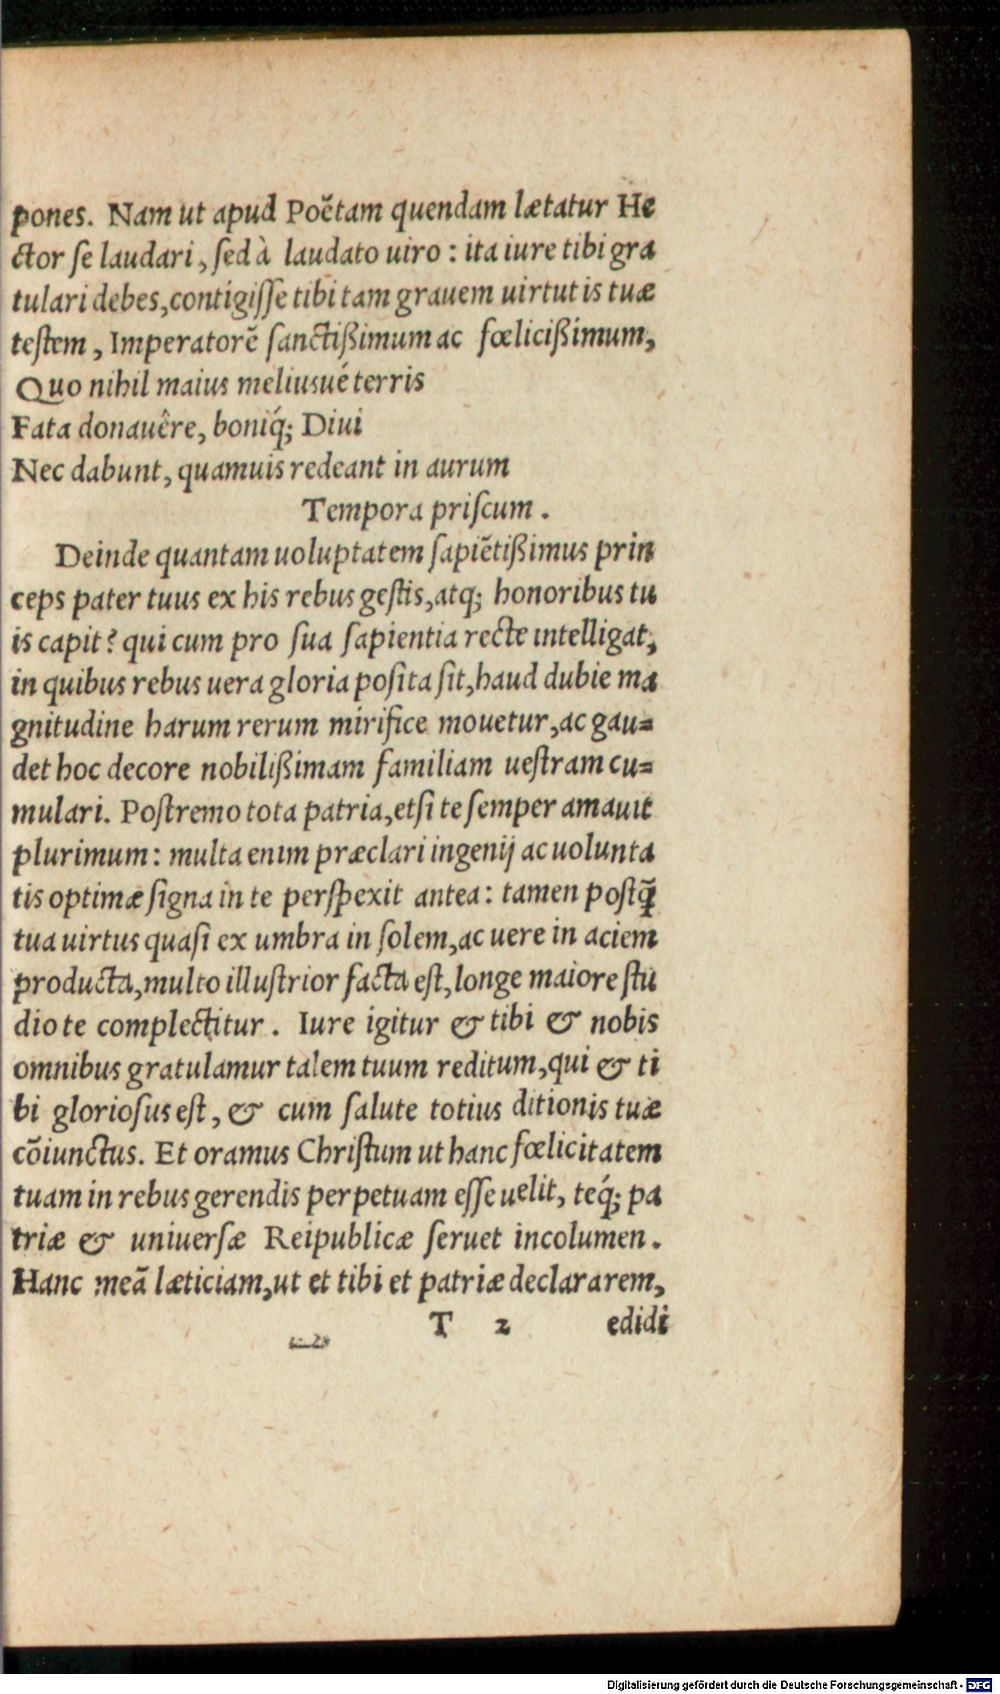 pones. Nam ut apud Poëtam quendam lætatur He
ctor ſe laudari, ſed à laudato uiro: ita iure tibi gra
tulari debes, contigiſſe tibi tam grauem uirtutis tuæ
teſtem, Imperatorē ſanctißimum ac fœlicißimum,
Quo nihil maius meliusué terris
Fata donauêre, boniq́; Diui
Nec dabunt, quamuis redeant in aurum
Tempora priſcum.
Deinde quantam uoluptatem ſapiētißimus prin
ceps pater tuus ex his rebus geſtis, atq; honoribus tu
is capit? qui cum pro ſua ſapientia recte intelligat,
in quibus rebus uera gloria poſita ſit, haud dubie ma
gnitudine harum rerum mirifice mouetur, ac gau=
det hoc decore nobilißimam familiam ueſtram cu=
mulari. Poſtremo tota patria, etſi te ſemper amauit
plurimum: multa enim præclari ingenij ac uolunta
tis optimæ ſigna in te perſpexit antea: tamen poſtq̃
tua uirtus quaſi ex umbra in ſolem, ac uere in aciem
producta, multo illuſtrior facta eſt, longe maiore ſtu
dio te complectitur. Iure igitur & tibi & nobis
omnibus gratulamur talem tuum reditum, qui & ti
bi glorioſus est, & cum ſalute totius ditionis tuæ
cōiunctus. Et oramus Chriſtum ut hanc fœlicitatem
tuam in rebus gerendis perpetuam eſſe uelit, teq́; pa
triæ & uniuerſæ Reipublicæ ſeruet incolumen.
Hanc meā læticiam, ut et tibi et patriæ declararem,
T 2 edidi
Digitalisierung gefördert durch die Deutsche Forschungsgemeinschaft - DFG